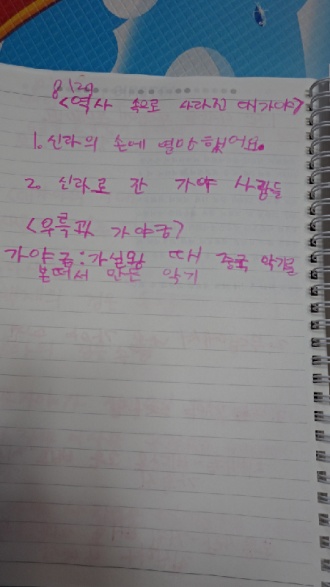 8/29
<역사 속으로 사라진 대가야>
1. 신라의 손에 멸망했어요.
2. 신라로 간 가야 사람들
<우륵과 가야금>
가야금:가실왕 때 중국 악기를
본떠서 만든 악기